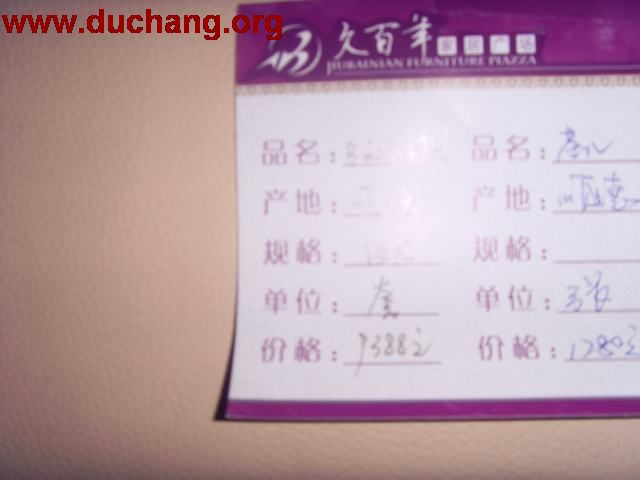 www.duchang.org
久百年家居广场
JIUBAINIAN FURNITURE PIAZZA
品名： 品名：茶几
产地： 产地：顺德
规格： 规格：
单位：套 单位：
价格：9388元 价格：1280元